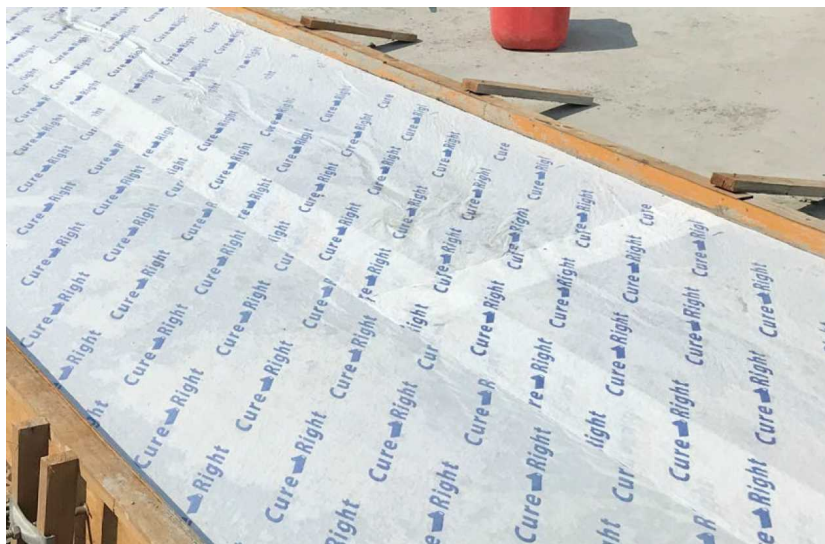 Cure Right